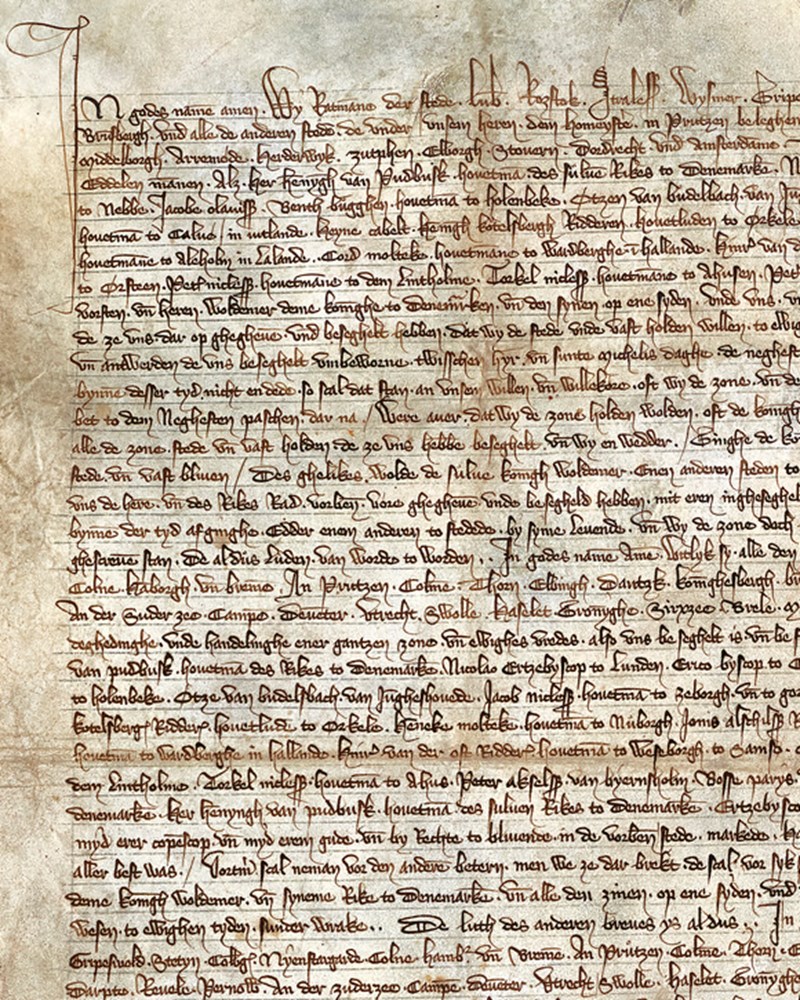 In godes name amen. Wy Ratmane der stede. Lub. Rozstok. Stralessund. Wysmer. Gripe
Brunsbergh. vnd alle de anderen stede. de vnder vnsem heren. dem homeyste. in Prutzen beleghen
Middelborgh. Arremude. herderwyk. zutphen. Elborgh. Stovern. Dordrecht vnd amsterdame.
Eddelen mannen. Alz. her henyngh van Pudbusk. houetma. des sulue Rikes to Denemarke.
to Nebbe. Jacobe olauiss. Benth bugghen. houetma to holenbeke. Otzen van budelbach. van Ju
houetma to Caluo in iutlande. heyne cabelt. henigh kotelsbergh Ridderen. houetluden to Orkele
houetmane to Aleholm in Lalande. Cord molteke. houetmane to wardberghe i hallande. hinr van d
to Orsteen. Pet nicless. houetmane to dem Lintholme. Tockel nicless. houetmane to Ahusen. Pet
vorsten. vn heren. Woldemer deme koninghe to denemrken. vn den synen. op ene syden. vnde vns.
de ze vns dar op ghegheue vnd beseghelt hebben. dat wy de stede vnde vast holden willen. to ewig
vn antwerden de vns beseghelt vmbeworne. twisschen hyr. vn sunte michelis daghe. de neghest
bynne desser tyd. nicht en dede. so scal dat stan. an vnsen willen. vn willekore. oft wy de zone. vn de
bet to dem Neghesten paschen. dar na / Were auer. dat wy de zone holden wolden. oft de koningh
alle de zone. stede vn vast holden. de ze vns hebbe beseghelt. vn wy en wedder. / Ginghe de ko
stede. vn vast bliuen / Des ghelikes. wolde de sulue konigh woldemer. Enen anderen steden to
vns de here. vn des Rikes Rad. vorben. vore ghegheue vnde beseghelt hebben. mit eren ingheseghel
bynne der tyd af ginghe. Edder enem anderen to stedede. by syme Leuende. vn wy de zone doch
ghescreue stan. De aldus Luden. van worde to worden. In godes name Ame. witlyk sy. alle den
Colne. haborgh. vn breme. In Prutzen. Colme. Thorn. Elbingh. Dantzk. konighesbergh. br
An der Suder zee. Campe. Deueter. vtrecht. Swolle. haselet. Gronyghe. Zirxzee. Brele. M
deghedinghe. vnde handelinghe ener gantzen zone. vn ewighes vredes. also vns beseghelt is. vn be s
van pudbusk. houetma des Rikes to Denemarke. Nicolao Ertzebyscop to Lunden. Erico byscop to
to holenbeke. Otze van budelsbach. van Jugheshouede. Jacob nicless. houetma to zeborgh. vn to go
kotelsberg. Ridder. houetlude to Orkele. heneke molteke. houetma to Niborgh. Jonis
houetma to wardberghe in hallande. hinr van der ost Ridder. houetma to weseborgh. to Samso.
dem Lintholme. Tockel nicless. houetma to Ahus. Peter akselss. van byernsholm. Bosse parys
denemarke. her henyngh van pudbusk. houetma des suluen Rikes to denemarke. Ertzebysco
myd erer copescop. vn myd erem gude. vn by Rechte to bliuende. in de vorben stede. markede.
aller best was. / Vortm scal neman vor den andere betern. men we ze dar brekt. de scal vor syk
deme konigh woldemer. vn syneme Rike to Denemarke. vn alle den zinen. op ene syden. vnd
wesen. to ewighen tyden. sunder wrake. De luth des anderen breues ys aldus. In
Gripeswold. Stetyn. Colbg. Nyenstargarde. Colne. hamb. vn Breme. In Prutzen. Colme. Thorn.
Darpte. Reuele. Pernow. An der zuderzee. Campe. Deueter. vtrecht. Swolle. haselet. Gronyghe